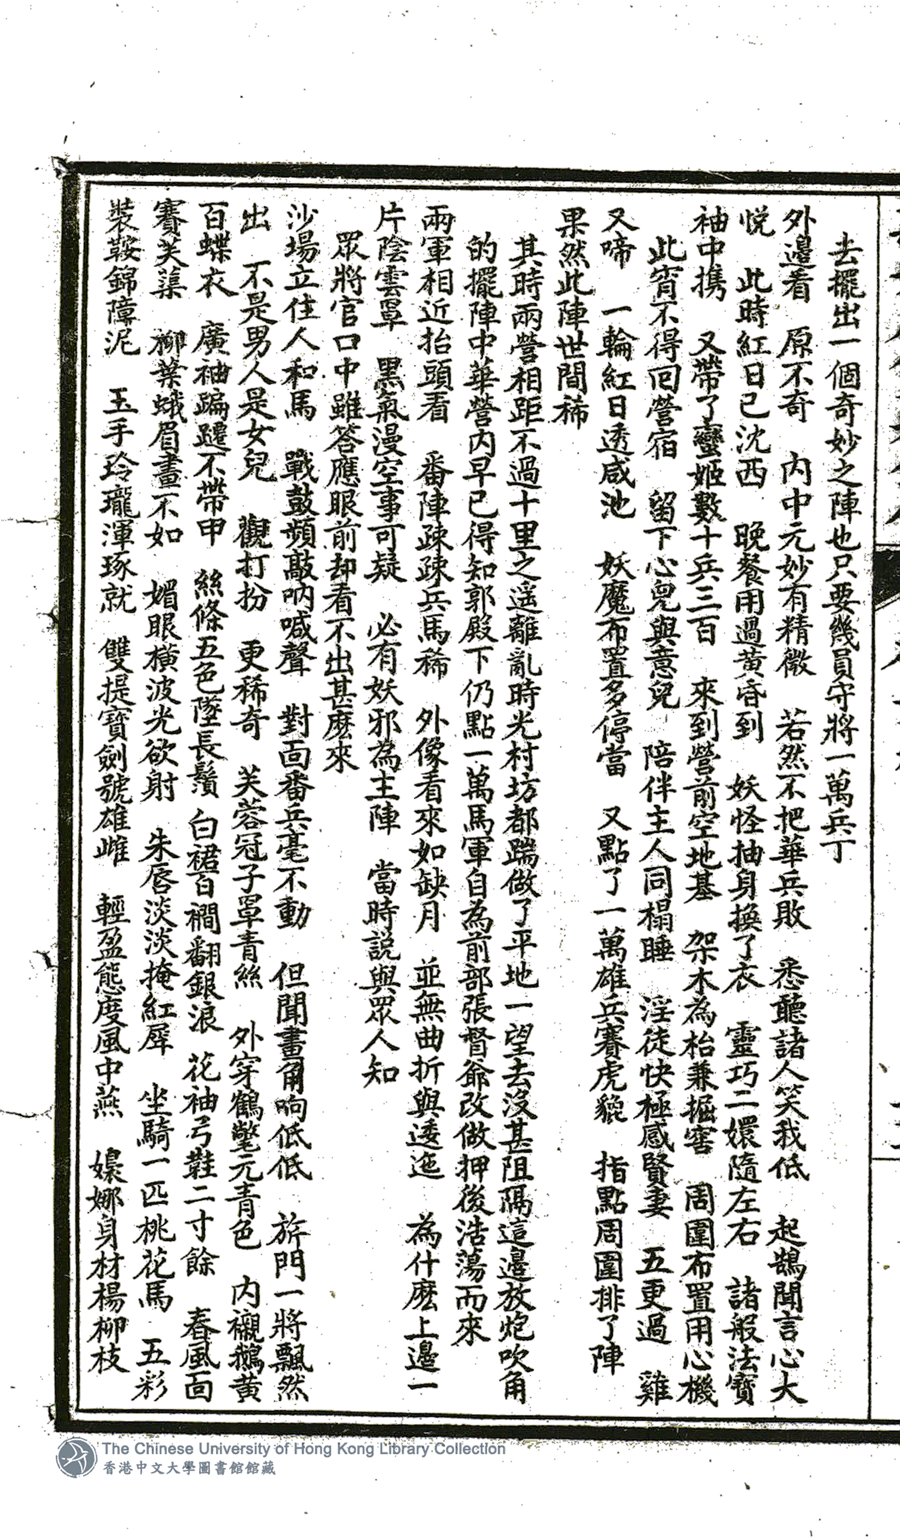 去擺出一個奇妙之陣也只要幾員守將一萬兵丁
外邊看　原不奇　內中元妙有精微　若然不把華兵敗　悉聽諸人笑我低　起鵠聞言心大
悅　此時紅日已沈西　晚餐用過黃昏到　妖怪抽身換了衣　靈巧二嬛隨左右　諸般法寶
袖中携　又帶了蠻姬數十兵三百　來到營前空地基　架木為枱兼掘窖　周圍布置用心機
此宵不得回營宿　留下心兒與意兒　陪伴主人同榻睡　淫徒快極感賢妻　五更過　雞
又啼　一輪紅日透咸池　妖魔布置多停當　又點了一萬雄兵賽虎貔　指點周圍排了陣
果然此陣世間稀
其時兩營相距不過十里之遙離亂時光村坊都踹做了平地一望去沒甚阻隔這邊放炮吹角
的擺陣中華營內早已得知郭殿下仍點一萬馬軍自為前部張督爺改做押後浩蕩而來
兩軍相近抬頭看　番陣疎疎兵馬稀　外像看來如缺月　並無曲折與逶迤　為什麼上邊一
片陰雲罩　黑氣漫空事可疑　必有妖邪為主陣　當時說與眾人知
眾將官口中雖答應眼前却看不出甚麽來
沙場立住人和馬　戰鼓頻敲吶喊聲　對面番兵毫不動　但聞畫角响低低　旂門一將飄然
出　不是男人是女兒　觀打扮　更稀奇　芙蓉冠子罩青絲　外穿鶴氅元青色　內襯鵝黃
百蝶衣　廣袖蹁躚不帶甲　絲條五色墜長鬚　白裙百襉翻銀浪　花袖弓鞋二寸餘　春風面
賽芙蕖　柳葉蛾眉畫不如　媚眼橫波光欲射　朱唇淡淡掩紅犀　坐騎一匹桃花馬　五彩
裝鞍錦障泥　玉手玲瓏渾琢就　雙提寶劍號雄雌　輕盈態度風中燕　嬝娜身材楊柳枝
The Chinese University of Hong Kong Library Collection
香港中文大學圖書館館藏